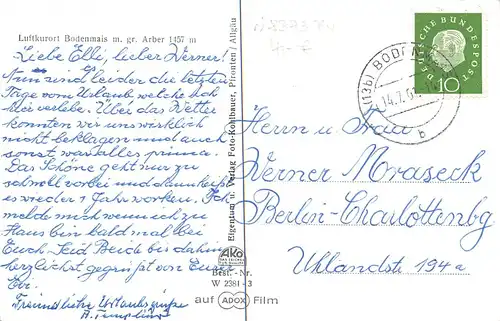 Luftkurort Bodenmais m. gr. Arber 1457 m
Liebe Elli, lieber Werner!
Nun sind leider die letzten
Tage vom Urlaub welche ich
hier verlebe. Über das Wetter
konnten wir uns wirklich
nicht beklagen und auch
sonst war alles prima.
Das Schöne geht nur zu
schnell vorbei und dann heißt
es wieder 1 Jahr worken. Ich
melde mich wenn ich zu
Haus bin bald mal bei
Euch. Seid Beide bis dahin
herzlichst gegrüßt von Eurer
Eve.
Freundliche Urlaubsgrüße
Eigentum u. Verlag Foto-Kohlbauer, Pfronten / Allgäu
AKO
Best.-Nr.
W 2384 - 3
auf ADOX Film
(13b) BODENMAIS
14.7.61
b
DEUTSCHE BUNDESPOST
10
Herrn und Frau
Werner Mraseck
Berlin-Charlottenbg
Uhlandstr 194a